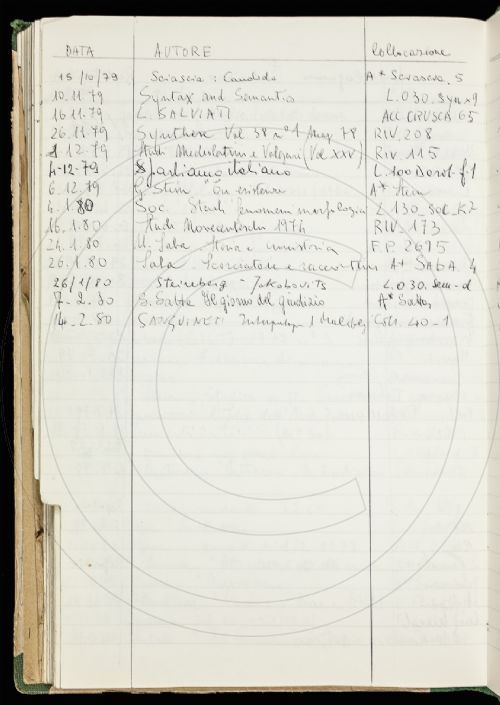 DATA AUTORE Collocazione
15/10/79 Sciascia: Candido A* Sciascia. 5
10.11.79 Syntax and Semantics L.030.Syn.9
16.11.79 L. SALVIATI ACC. CRUSCA 65
26.11.79 Synthese Vol 38 n°1 May 78 RIV. 208
1.12.79 Studi Mediolatini e Volgari (Vol XXV) RIV. 115
4-12-79 parliamo italiano L.100
6.12.79 G. Stein A* Stein
4.1.80 Soc. Studi fenomeni morfologici L 130
16.1.80 Studi Novecenteschi 1974 RIV. 173
24.1.80 U. Saba F.P. 2695
26.1.80 Saba A* SABA. 4
26/1/80 Steinberg - Jakobovits L.030. Sem-d
7-2.80 S. Satta Il giorno del giudizio A* Satta
14.2.80 SANGUINETI